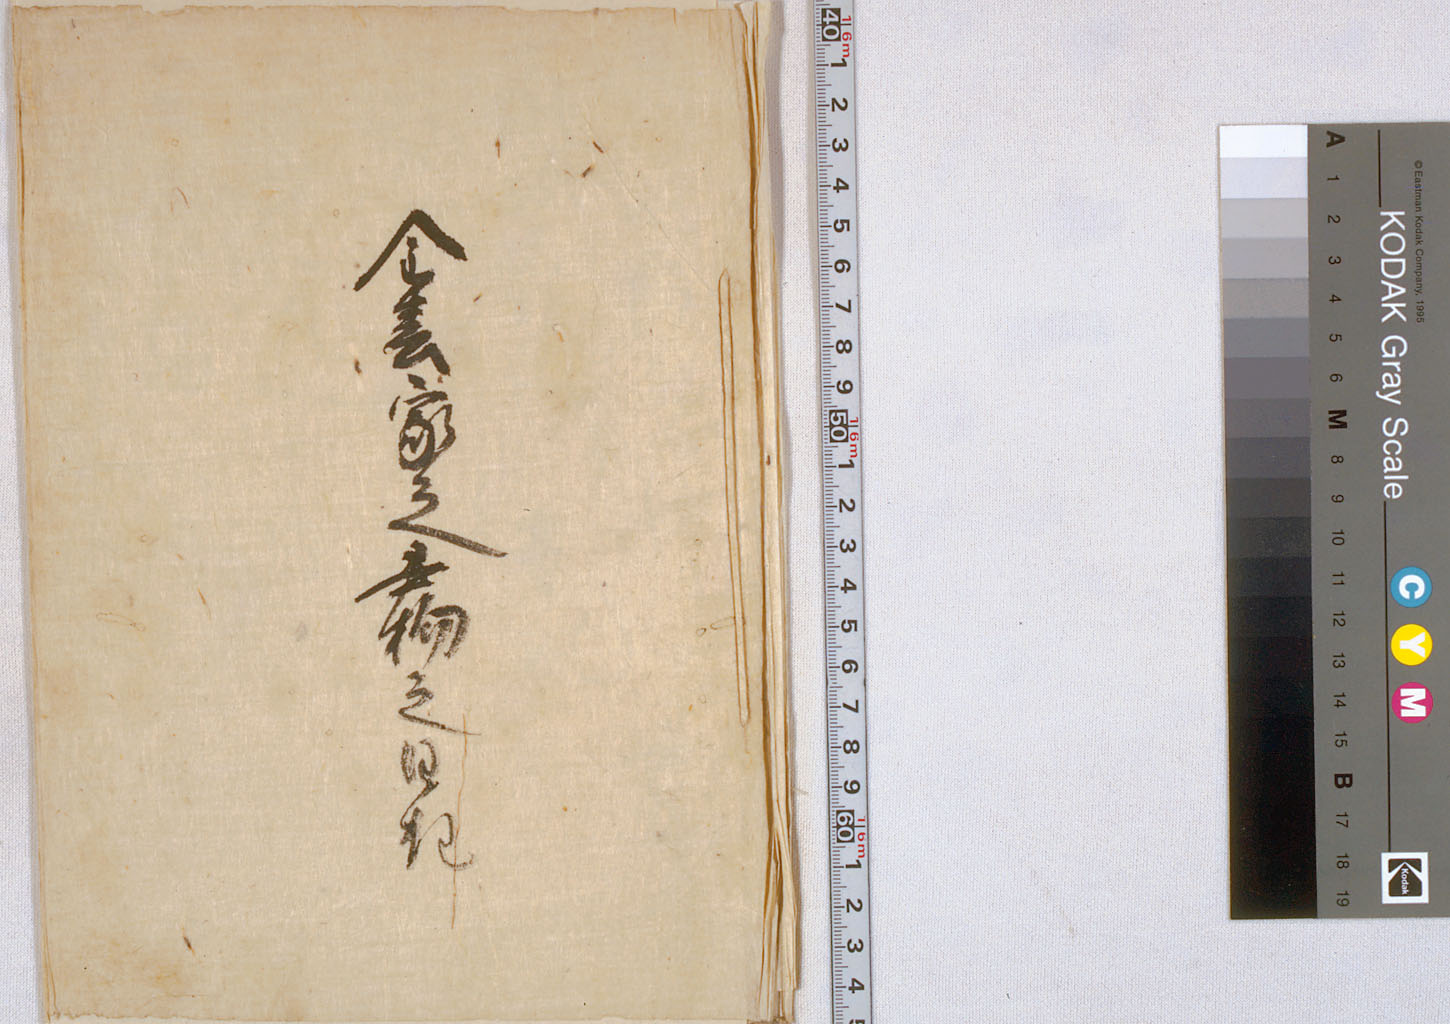 金春家之書物之日記
40 1 2 3 4 5 6 7 8 9 50 1 2 3 4 5 6 7 8 9 60 1 2 3 4 5
1/6m
1/6m
1/6m
© Eastman Kodak Company, 1995
KODAK Gray Scale
C Y M
Kodak
A 1 2 3 4 5 6 M 8 9 10 11 12 13 14 15 B 17 18 19